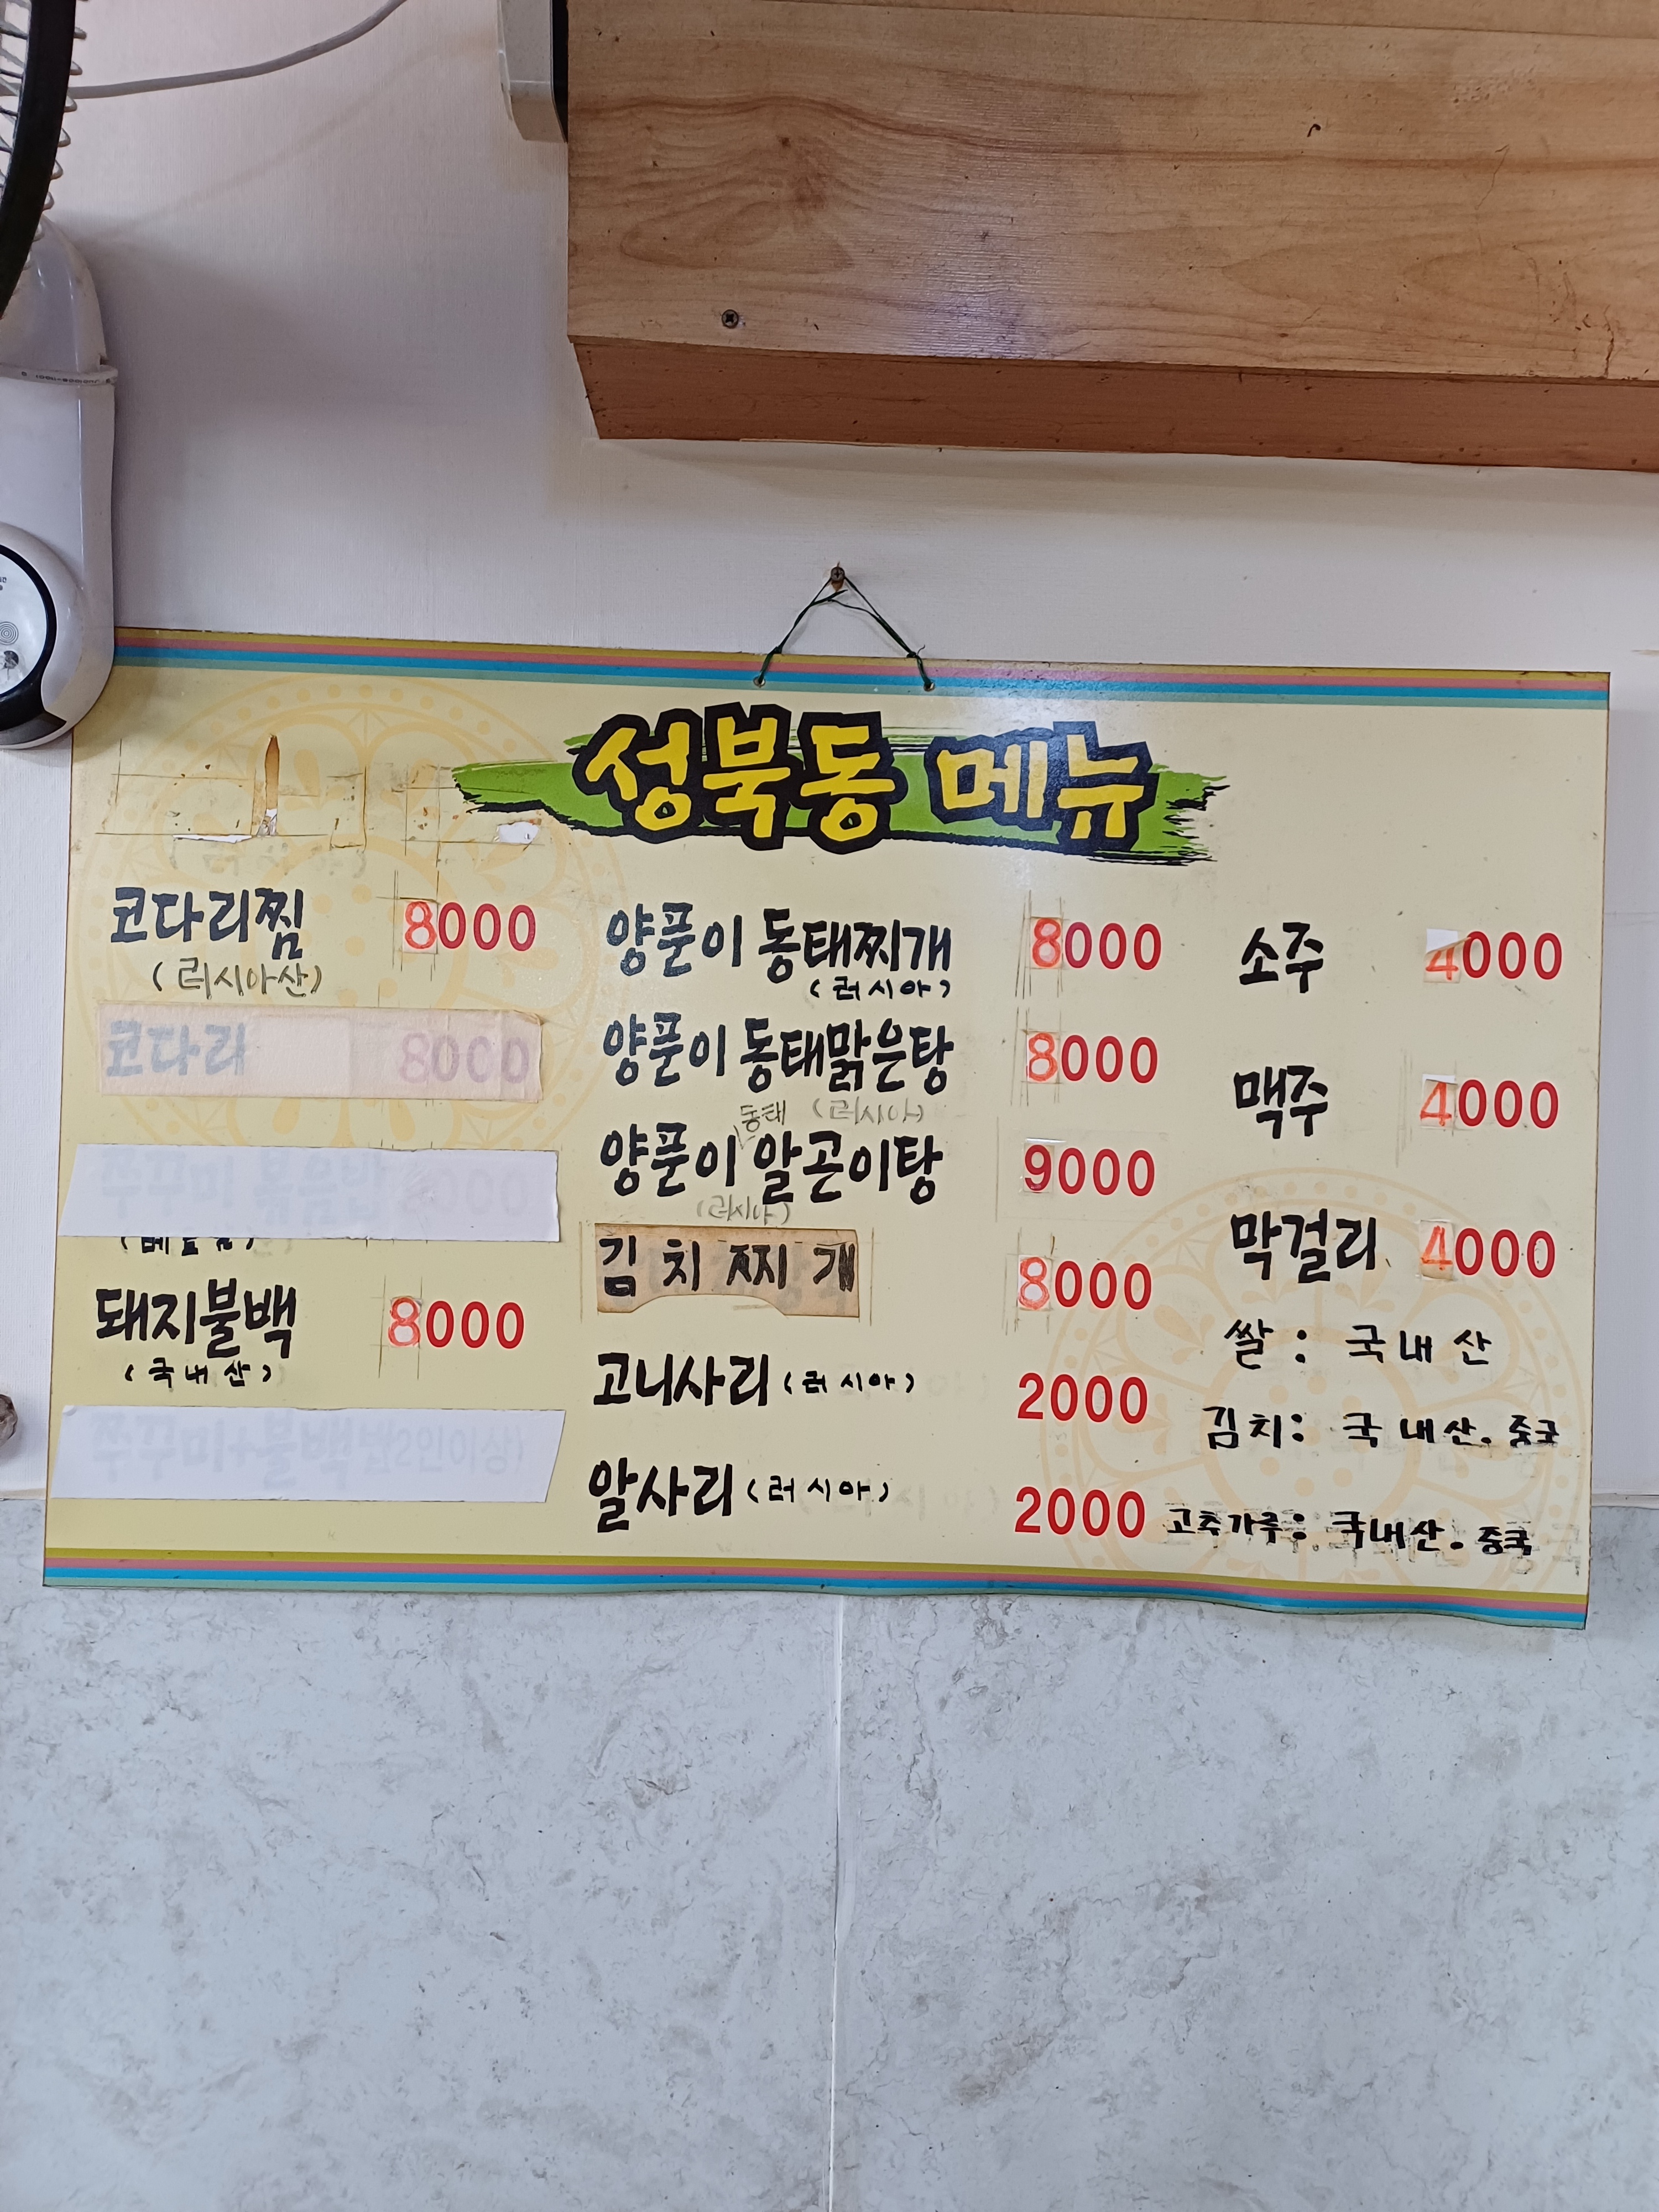 성북동 메뉴
코다리찜 8000
(러시아산)
코다리 8000
쭈꾸미 볶음밥 8000
돼지불백 8000
(국내산)
쭈꾸미+불백 (2인이상)
양푼이 동태찌개 8000
(러시아)
양푼이 동태맑은탕 8000
동태 (러시아)
양푼이 알곤이탕 9000
(러시아)
김치찌개 8000
고니사리 (러시아) 2000
알사리 (러시아) 2000
소주 4000
맥주 4000
막걸리 4000
쌀 : 국내산
김치: 국내산. 중국
고추가루: 국내산. 중국